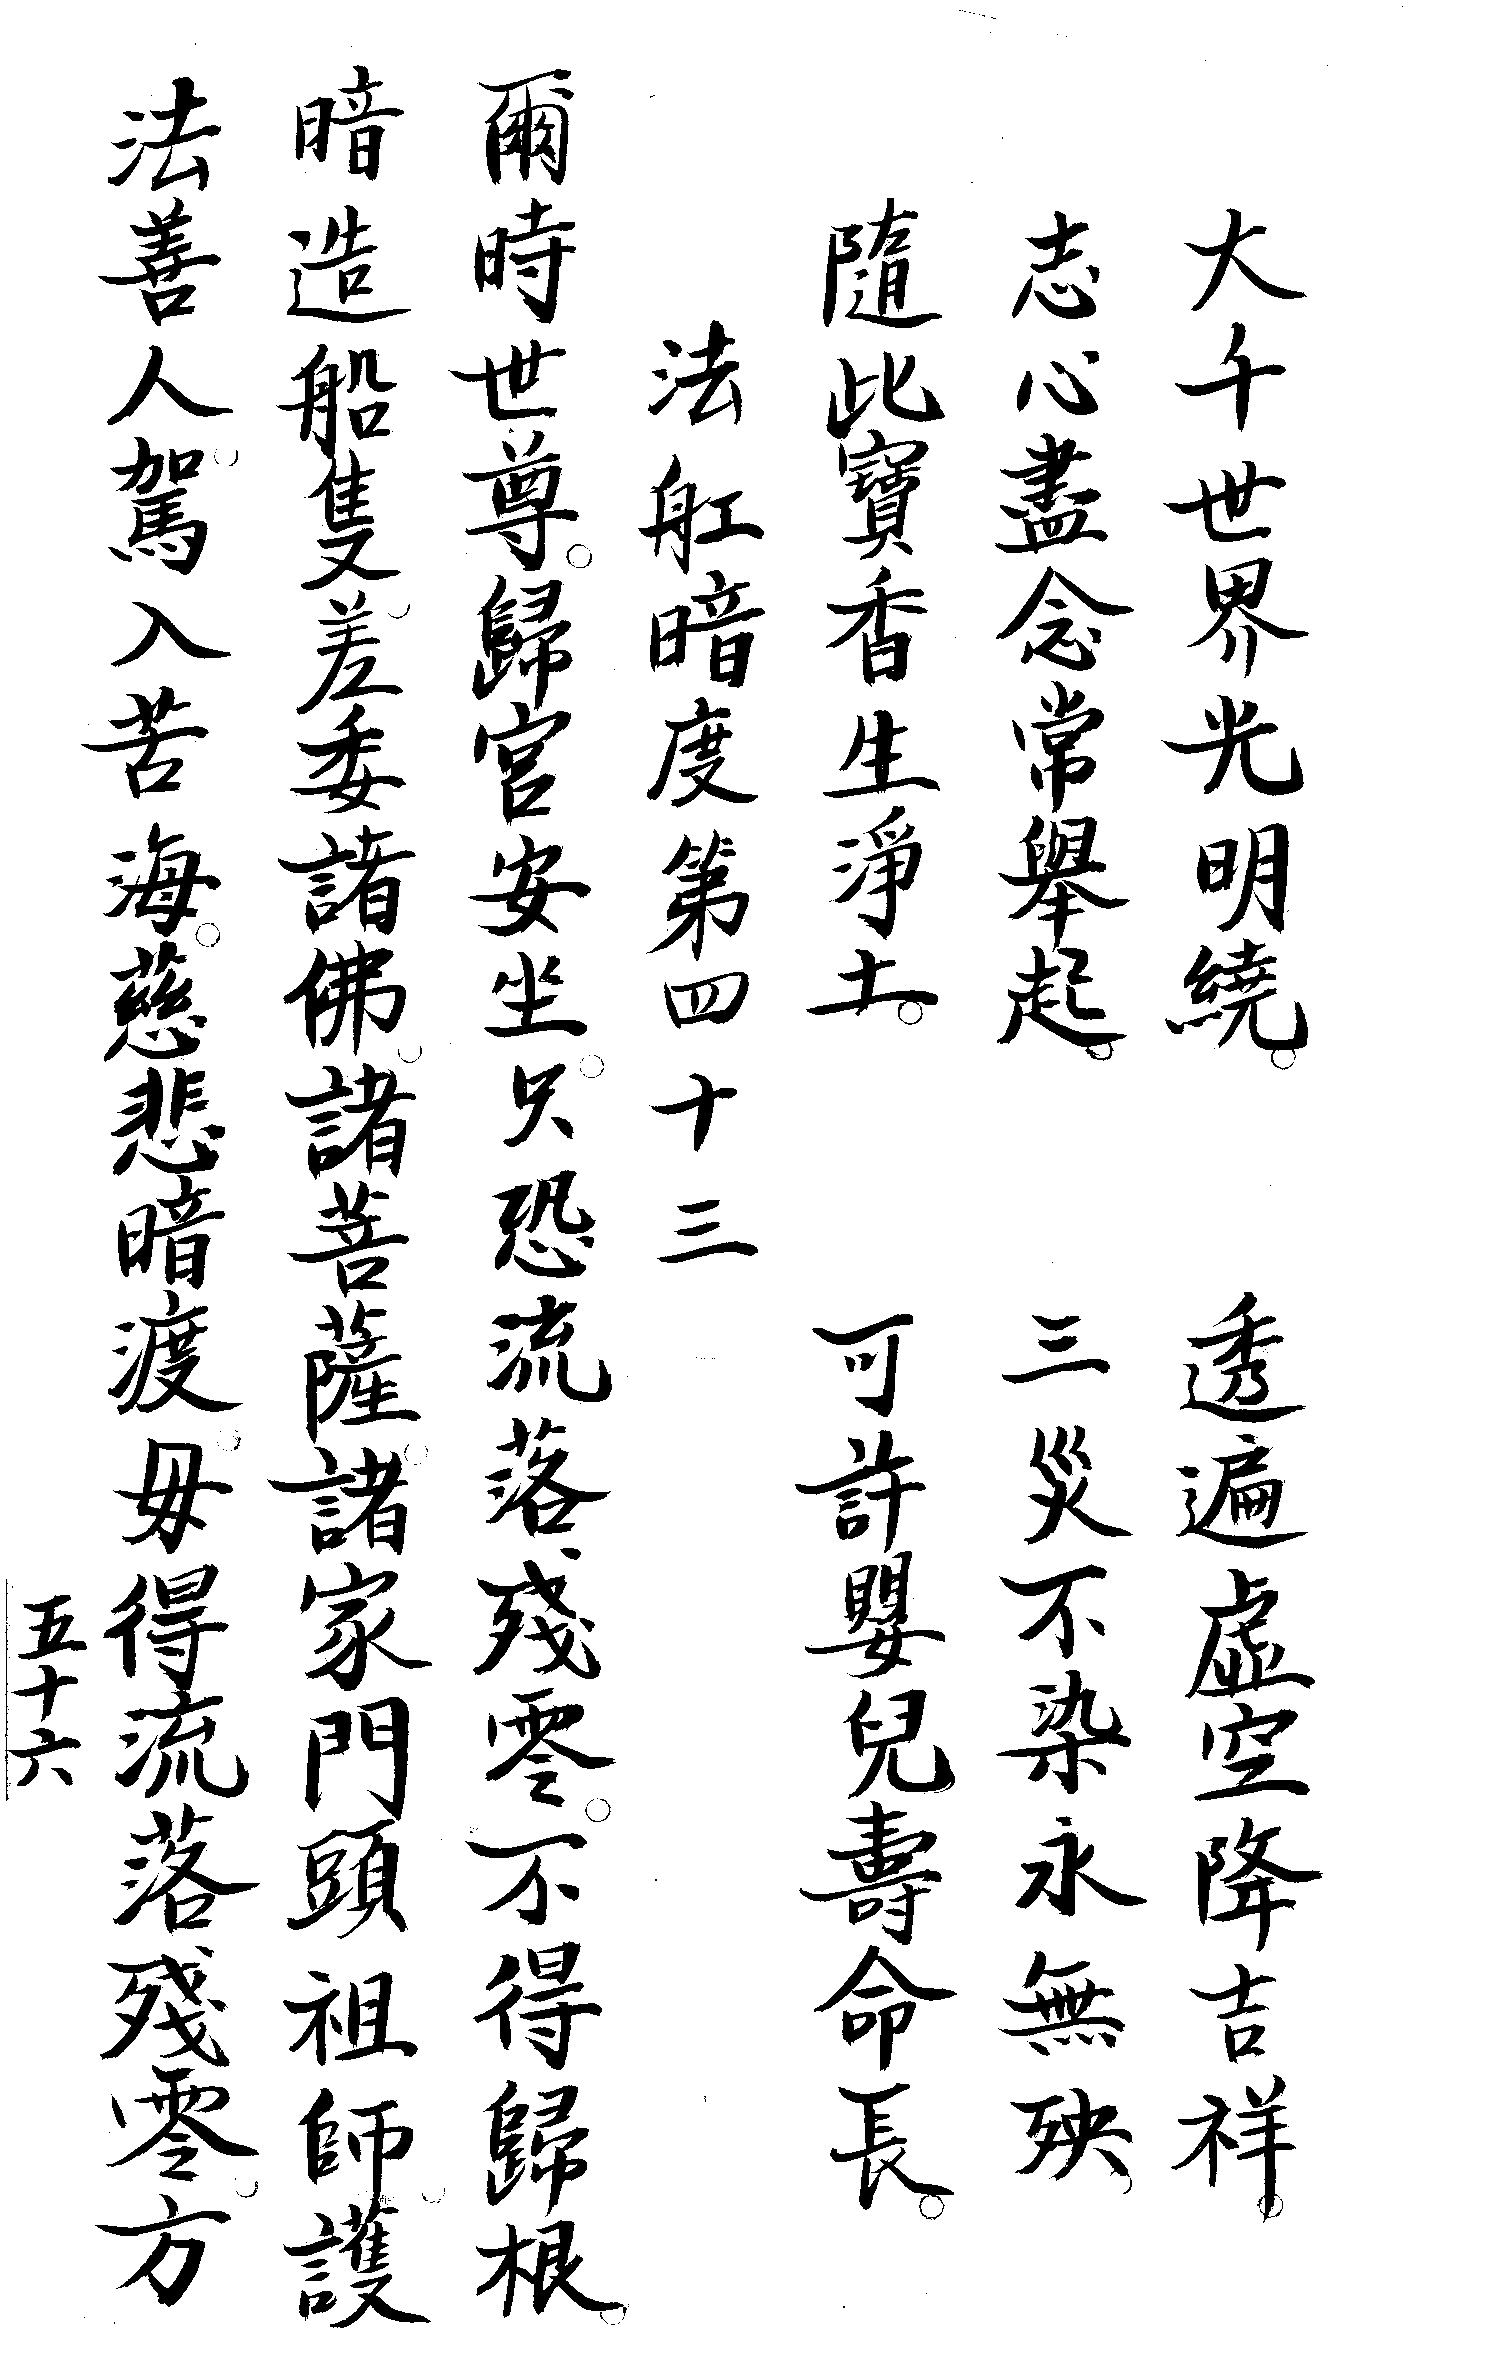 大千世界光明繞。　透遍虛空降吉祥。
志心盡念常舉起。　三災不染永無殃。
隨此寶香生淨土。　可許嬰兒壽命長。
法舡暗度第四十三
爾時世尊。歸宮安坐。只恐流落殘零。不得歸根。
暗造船隻。差委諸佛。諸菩薩。諸家門頭祖師。護
法善人。駕入苦海。慈悲暗渡。毋得流落殘零。方
五十六